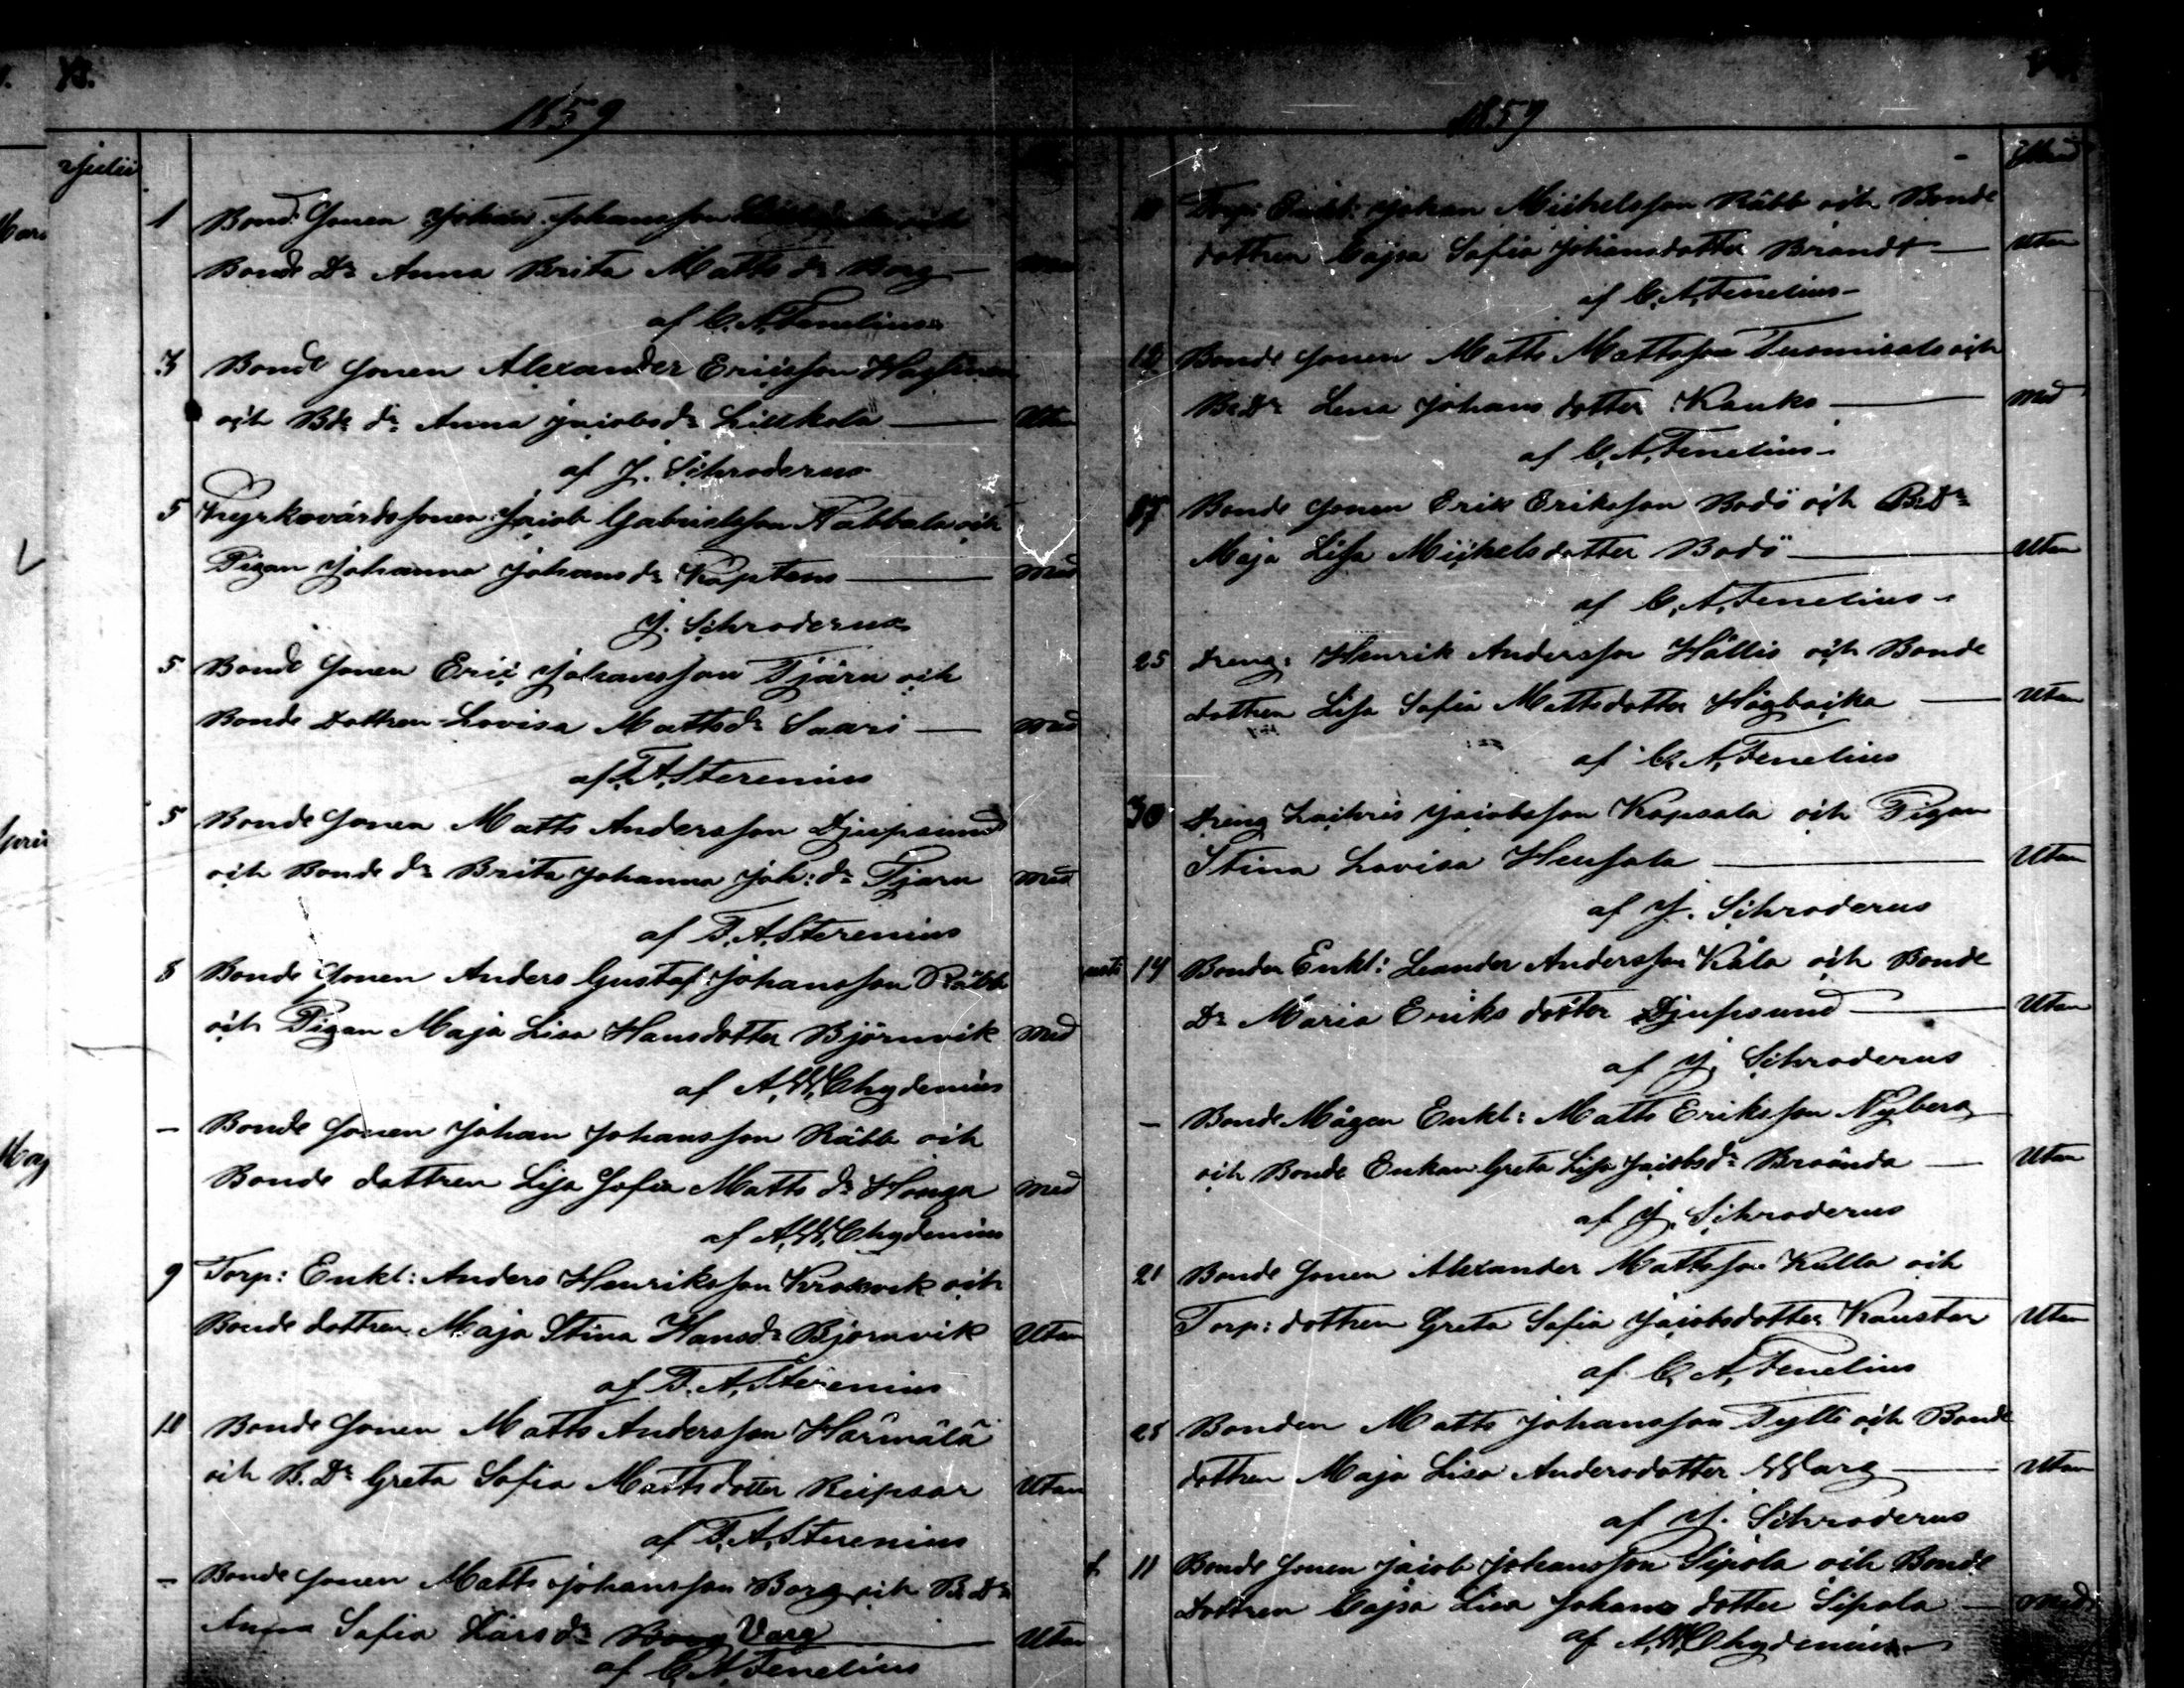 1859
Julii
1 Bond Sonen Johan Johansson
Bonde Dr Anna Brita Matts dr Borg —
af C. A. Fenelius
3 Bonde Sonen Alexander Ericsson
och Bde dr Anna Jacobsdr Lillkola — Utan
af J. Schroderus
5 Kyrkovärdssonen Jacob Gabrielsson Nabbala och
Pigan Johanna Johansdr Kaptens — med
J. Schroderus
5 Bonde Sonen Eric Johansson Tjäru och
Bonde Dottren Lovisa Mattsdr Saari — med
af F. A. Sterenius
5 Bonde Sonen Matts Andersson Djupsund
och Bonde dr Brita Johanna Joh: dr Tjäru med
af F. A. Sterenius
8 Bonde Sonen Anders Gustaf Johansson Räbb
och Pigan Maja Lisa Hansdotter Björnvik med
af A. W. Chydenius
— Bonde Sonen Johan Johansson Räbb och
Bonde dottren Lisa Sofia Matts dr Honga med
af A. W. Chydenius
9 Torp: Enkl: Anders Henriksson Krokvik och
Bonde dottren Maja Stina Hansdr Björnvik Utan
af F. A. Sterenius
10 Bonde Sonen Matts Andersson Härmälä
och B. Dr Greta Sofia Mattsdotter Reipsar Utan
af F. A. Sterenius
— Bonde Sonen Matts Johansson Borg och B. Dr
Anna Sofia Larsdr Varg — Utan
af C. A. Fenelius
1859
10 Torp: Enkl: Johan Michelsson Räbb och Bonde
dottren Cajsa Sofia Johansdotter Brandt — Utan
af C. A. Fenelius
12 Bonde Sonen Matts Mattsson Tuomisalo och
B. Dr Lena Johans dotter Kauko — med
af C. A. Fenelius
17 Bonde Sonen Erik Eriksson Bodö och B. Dr
Maja Lisa Michelsdotter Bodö — Utan
af C. A. Fenelius
25 Dreng: Henrik Andersson Hällis och Bonde
dottren Lisa Sofia Mattsdotter Högbacka — Utan
af C. A. Fenelius
30 Dreng Zachris Jacobsson Kopsala och Pigan
Stina Lovisa Hensala — Utan
af J. Schroderus
14 Bonden Enkl: Leander Andersson Kåla och Bonde
Dr Maria Eriks dotter Djupsund — Utan
af J. Schroderus
— Bonde Mågen Enkl: Matts Eriksson Nyberg
och Bonde Enkan Greta Lisa Jacobsdr Braända — Utan
af J. Schroderus
21 Bonde Sonen Alexander Mattsson Kulla och
Torp: dottren Greta Sofia Jacobsdotter Kaustar Utan
af C. A. Fenelius
28 Bonden Matts Johansson Tylli och Bonde
dottren Maja Lisa Andersdotter Warg — Utan
af J. Schroderus
11 Bonde Sonen Jacob Johansson Sipola och Bonde
Dottren Cajsa Lisa Johans dotter Sipola — med
af A. W. Chydenius